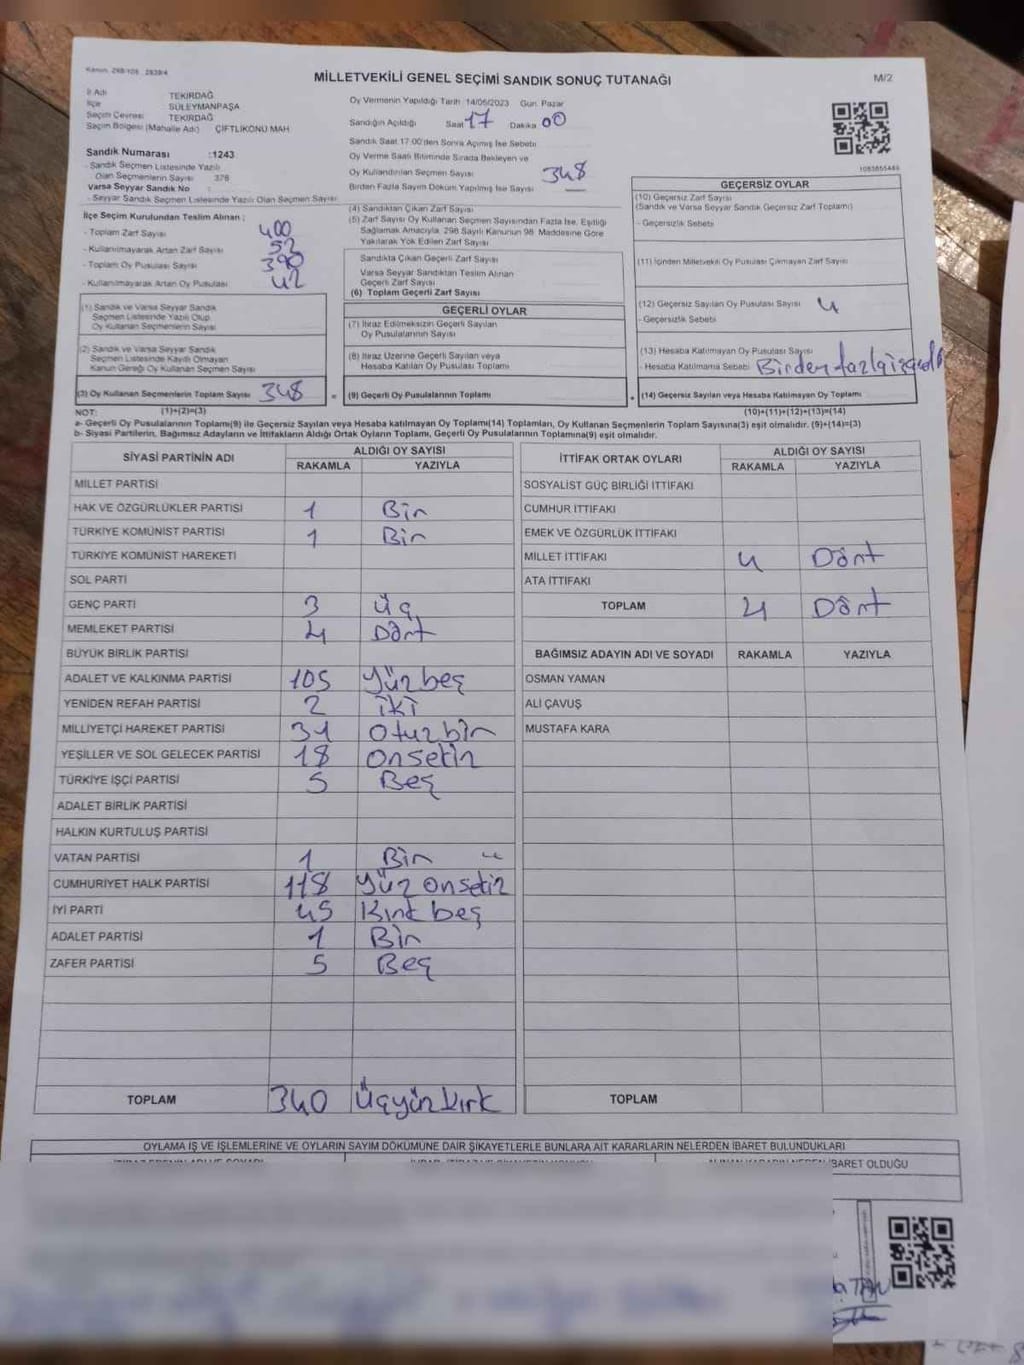 Kanun: 298/105 , 2839/4
MİLLETVEKİLİ GENEL SEÇİMİ SANDIK SONUÇ TUTANAĞI
M/2
İl Adı TEKİRDAĞ
İlçe SÜLEYMANPAŞA
Seçim Çevresi TEKİRDAĞ
Seçim Bölgesi (Mahalle Adı) ÇİFTLİKÖNÜ MAH
Sandık Numarası :1243
- Sandık Seçmen Listesinde Yazılı
Olan Seçmenlerin Sayısı 378
Varsa Seyyar Sandık No :
- Seyyar Sandık Seçmen Listesinde Yazılı Olan Seçmen Sayısı
Oy Vermenin Yapıldığı Tarih 14/05/2023 Gün Pazar
Sandığın Açıldığı Saat 17 Dakika 00
Sandık Saat 17:00'den Sonra Açılmış İse Sebebi
Oy Verme Saati Bitiminde Sırada Bekleyen ve
Oy Kullandırılan Seçmen Sayısı 348
Birden Fazla Sayım Döküm Yapılmış İse Sayısı
İlçe Seçim Kurulundan Teslim Alınan ;
- Toplam Zarf Sayısı 400
- Kullanılmayarak Artan Zarf Sayısı 52
- Toplam Oy Pusulası Sayısı 390
- Kullanılmayarak Artan Oy Pusulası 42
(1) Sandık ve Varsa Seyyar Sandık
Seçmen Listesinde Yazılı Olup
Oy Kullanan Seçmenlerin Sayısı
(2) Sandık ve Varsa Seyyar Sandık
Seçmen Listesinde Kayıtlı Olmayan
Kanun Gereği Oy Kullanan Seçmen Sayısı
(3) Oy Kullanan Seçmenlerin Toplam Sayısı 348
(4) Sandıktan Çıkan Zarf Sayısı
(5) Zarf Sayısı Oy Kullanan Seçmen Sayısından Fazla İse, Eşitliği
Sağlamak Amacıyla, 298 Sayılı Kanunun 98. Maddesine Göre
Yakılarak Yok Edilen Zarf Sayısı
Sandıkta Çıkan Geçerli Zarf Sayısı
Varsa Seyyar Sandıktan Teslim Alınan
Geçerli Zarf Sayısı
(6) Toplam Geçerli Zarf Sayısı
GEÇERLİ OYLAR
(7) İtiraz Edilmeksizin Geçerli Sayılan
Oy Pusulalarının Sayısı
(8) İtiraz Üzerine Geçerli Sayılan veya
Hesaba Katılan Oy Pusulası Toplamı
= (9) Geçerli Oy Pusulalarının Toplamı
GEÇERSİZ OYLAR
(10) Geçersiz Zarf Sayısı
(Sandık ve Varsa Seyyar Sandık Geçersiz Zarf Toplamı)
- Geçersizlik Sebebi
(11) İçinden Milletvekili Oy Pusulası Çıkmayan Zarf Sayısı
(12) Geçersiz Sayılan Oy Pusulası Sayısı 4
- Geçersizlik Sebebi
(13) Hesaba Katılmayan Oy Pusulası Sayısı
- Hesaba Katılmama Sebebi Birden fazla
+ (14) Geçersiz Sayılan veya Hesaba Katılmayan Oy Toplamı
NOT: (1)+(2)=(3) (10)+(11)+(12)+(13)=(14)
a- Geçerli Oy Pusulalarının Toplamı(9) ile Geçersiz Sayılan veya Hesaba Katılmayan Oy Toplamı(14) Toplamları, Oy Kullanan Seçmenlerin Toplam Sayısına(3) eşit olmalıdır. (9)+(14)=(3)
b- Siyasi Partilerin, Bağımsız Adayların ve İttifakların Aldığı Ortak Oyların Toplamı, Geçerli Oy Pusulalarının Toplamına(9) eşit olmalıdır.
SİYASİ PARTİNİN ADI ALDIĞI OY SAYISI
RAKAMLA YAZIYLA
MİLLET PARTİSİ
HAK VE ÖZGÜRLÜKLER PARTİSİ 1 Bir
TÜRKİYE KOMÜNİST PARTİSİ 1 Bir
TÜRKİYE KOMÜNİST HAREKETİ
SOL PARTİ
GENÇ PARTİ 3 üç
MEMLEKET PARTİSİ 4 Dört
BÜYÜK BİRLİK PARTİSİ
ADALET VE KALKINMA PARTİSİ 105 Yüzbeş
YENİDEN REFAH PARTİSİ 2 iki
MİLLİYETÇİ HAREKET PARTİSİ 31 Otuzbir
YEŞİLLER VE SOL GELECEK PARTİSİ 18 Onsekiz
TÜRKİYE İŞÇİ PARTİSİ 5 Beş
ADALET BİRLİK PARTİSİ
HALKIN KURTULUŞ PARTİSİ
VATAN PARTİSİ 1 Bir
CUMHURİYET HALK PARTİSİ 118 Yüz onsekiz
İYİ PARTİ 45 Kırk beş
ADALET PARTİSİ 1 Bir
ZAFER PARTİSİ 5 Beş
TOPLAM 340 Üçyüz kırk
İTTİFAK ORTAK OYLARI ALDIĞI OY SAYISI
RAKAMLA YAZIYLA
SOSYALİST GÜÇ BİRLİĞİ İTTİFAKI
CUMHUR İTTİFAKI
EMEK VE ÖZGÜRLÜK İTTİFAKI
MİLLET İTTİFAKI 4 Dört
ATA İTTİFAKI
TOPLAM 4 Dört
BAĞIMSIZ ADAYIN ADI VE SOYADI RAKAMLA YAZIYLA
OSMAN YAMAN
ALİ ÇAVUŞ
MUSTAFA KARA
TOPLAM
OYLAMA İŞ VE İŞLEMLERİNE VE OYLARIN SAYIM DÖKÜMÜNE DAİR ŞİKAYETLERLE BUNLARA AİT KARARLARIN NELERDEN İBARET BULUNDUKLARI
İBARET OLDUĞU